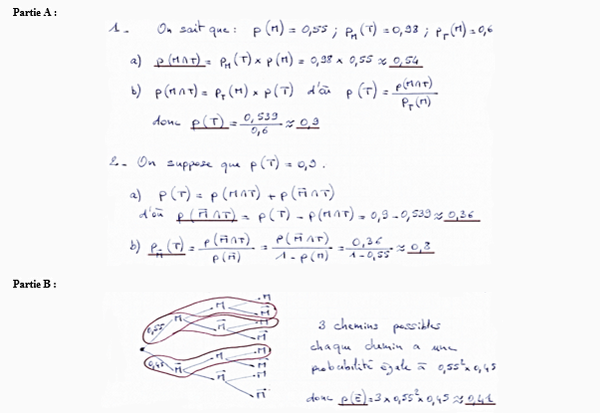 Partie A :
1. On sait que : p(M) = 0,55 ; p_M(T) = 0,98 ; p_T(M) = 0,6
a) p(M∩T) = p_M(T) × p(M) = 0,98 × 0,55 ≈ 0,54
b) p(M∩T) = p_T(M) × p(T) d'où p(T) = p(M∩T) / p_T(M)
donc p(T) = 0,539 / 0,6 ≈ 0,9
2. On suppose que p(T) = 0,9.
a) p(T) = p(M∩T) + p(M̄∩T)
d'où p(M̄∩T) = p(T) - p(M∩T) = 0,9 - 0,539 ≈ 0,36
b) p_M̄(T) = p(M̄∩T) / p(M̄) = p(M̄∩T) / 1 - p(M) = 0,36 / 1 - 0,55 ≈ 0,8
Partie B :
0,55 M M M
M̄
M̄ M
M̄
0,45 M̄ M M
M̄
M̄ M
M̄
3 chemins possibles
chaque chemin a une
probabilité égale à 0,55² × 0,45
donc p(E) = 3 × 0,55² × 0,45 ≈ 0,41